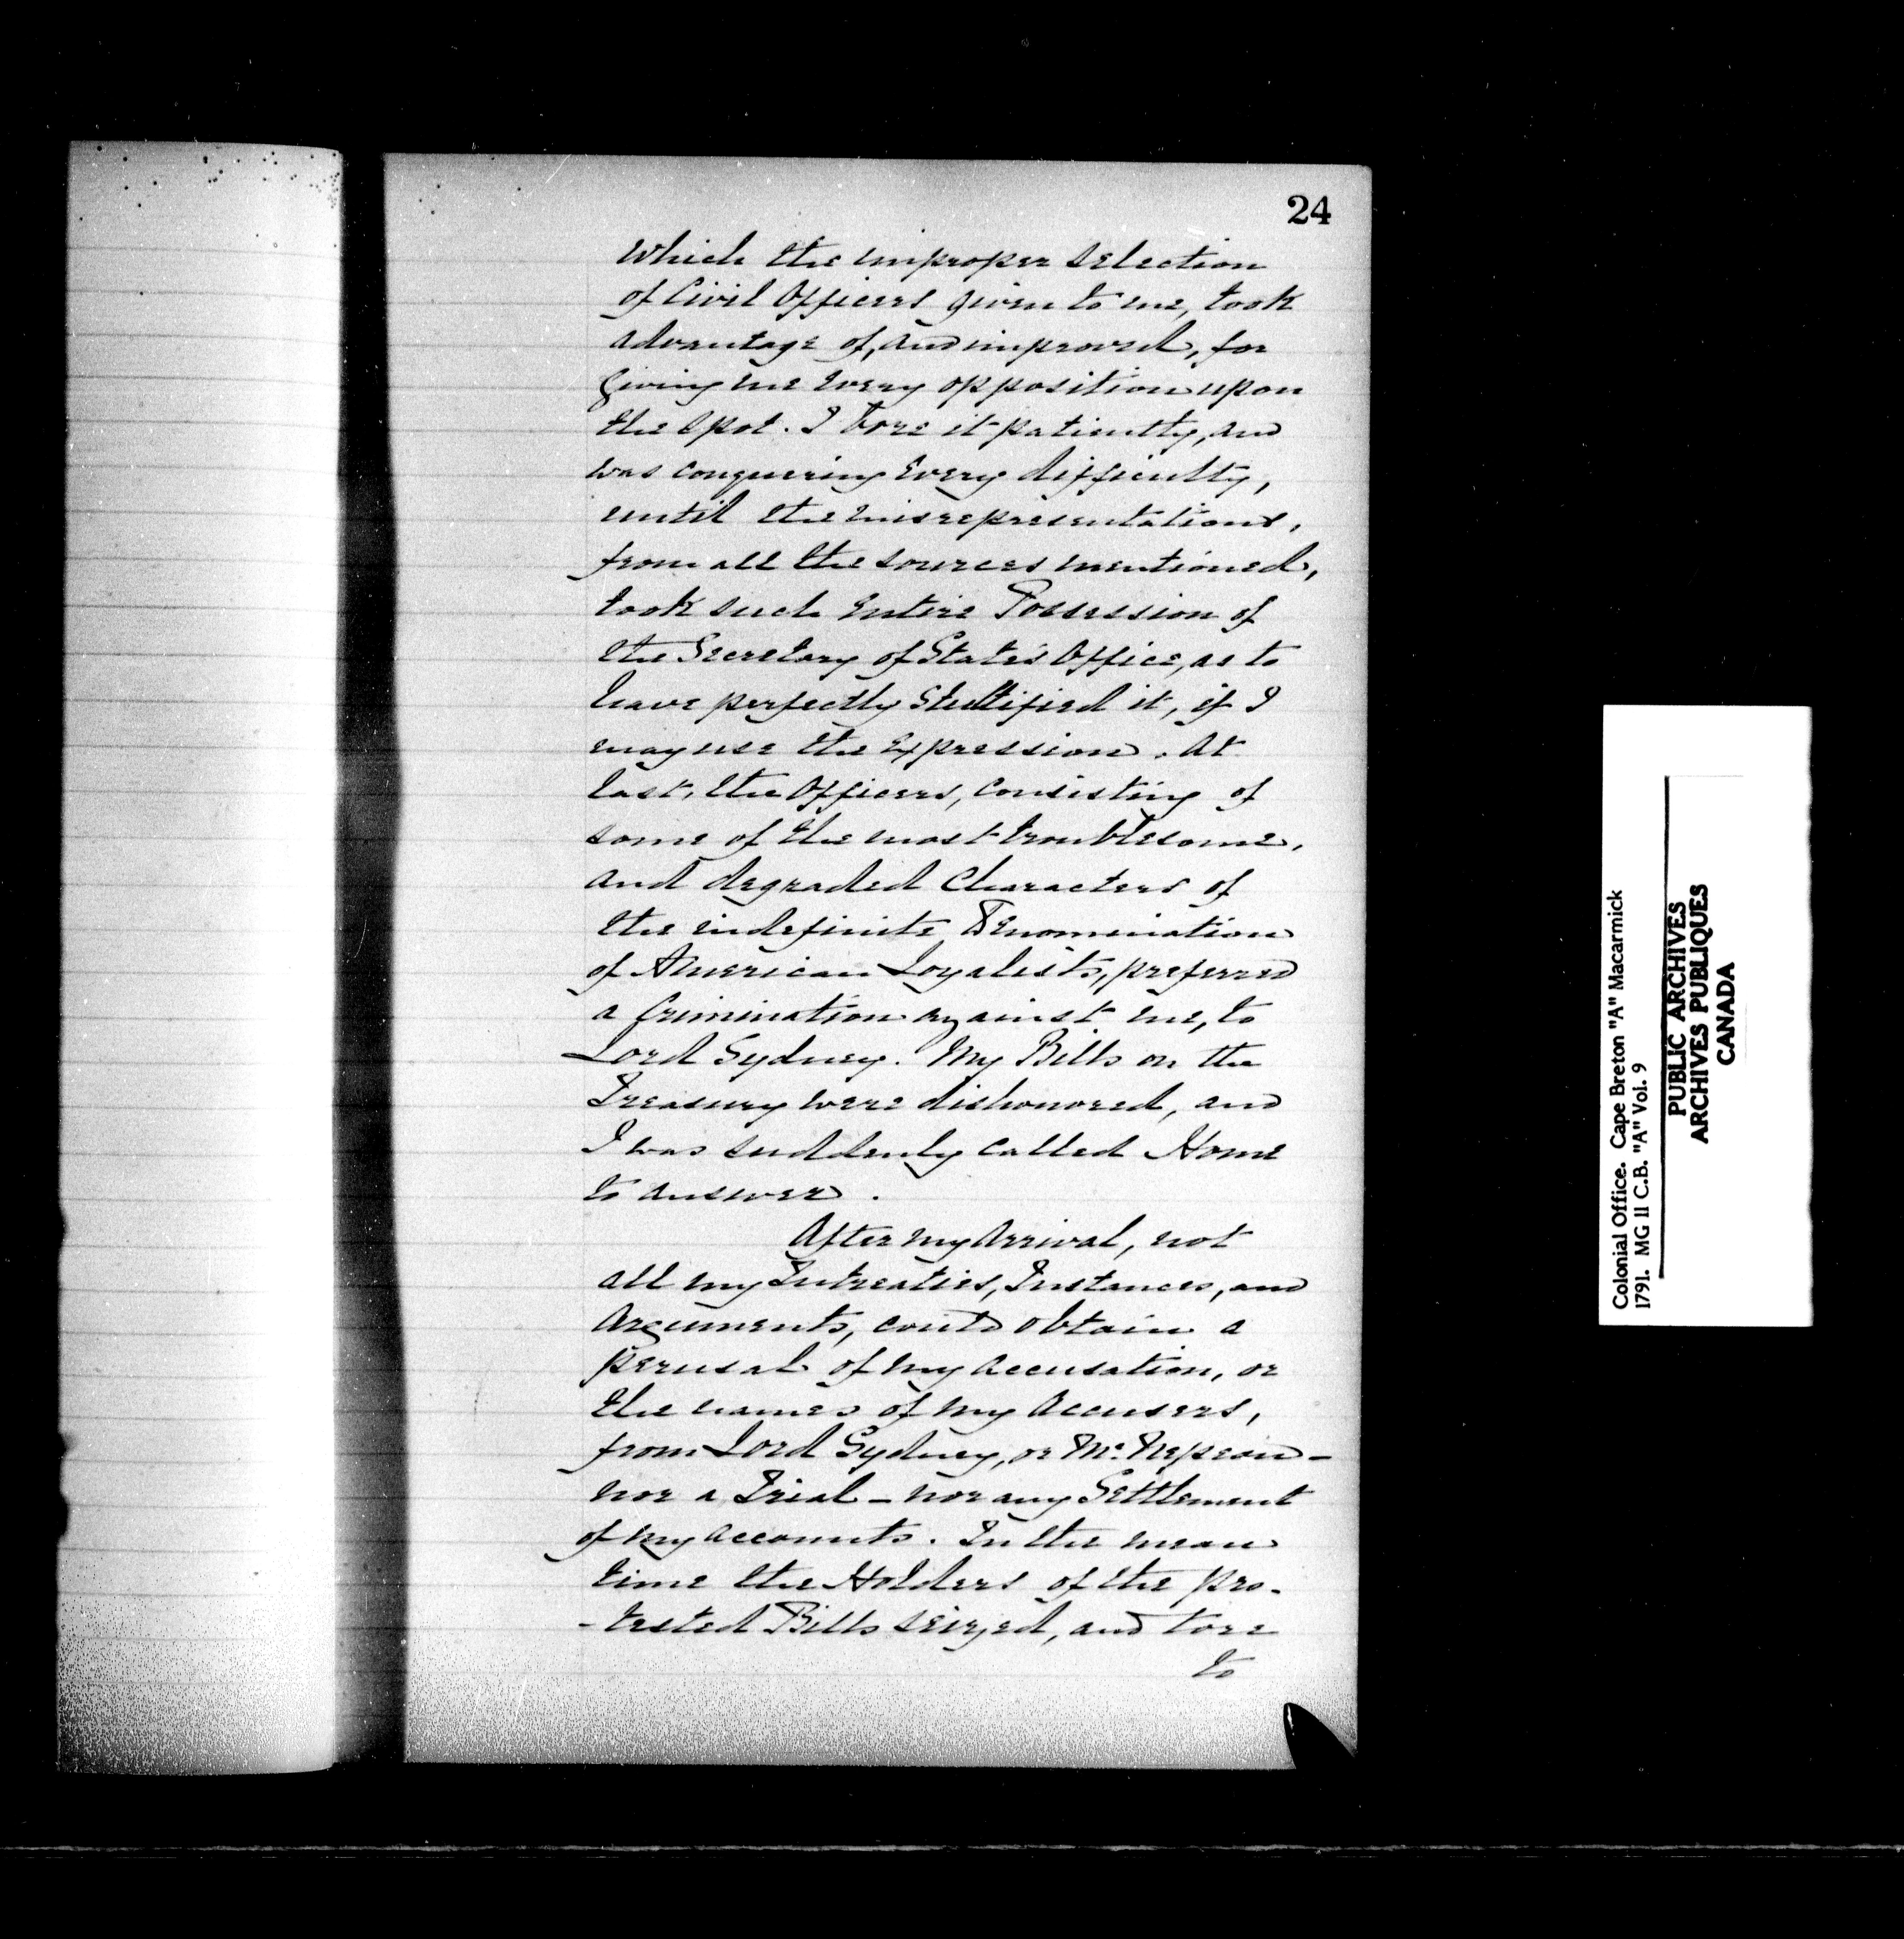 24
which the improper selection
of Civil Officers given to me, took
advantage of, and improved, for
giving me every opposition upon
the spot. I bore it patiently, and
was conquering every difficulty,
until the misrepresentations,
from all the sources mentioned,
took such entire Possession of
the Secretary of State's Office, as to
have perfectly Stultified it, if I
may use the Expression. At
last, the Officers, consisting of
some of the most troublesome,
and degraded Characters of
the indefinite Denomination
of American Loyalists, preferred
a Crimination against me, to
Lord Sydney. My Bills on the
Treasury were dishonored, and
I was suddenly called Home
to answer.
After my Arrival, not
all my Intreaties, Instances, and
Arguments, could obtain a
perusal of my Accusation, or
the names of my Accusers,
from Lord Sydney, or Mr. Nepean -
nor a Trial - nor any Settlement
of my Accounts. In the mean
time the Holders of the pro-
-tested Bills seized, and tore
to
Colonial Office. Cape Breton "A" Macarmick
1791. MG 11 C.B. "A" Vol. 9
PUBLIC ARCHIVES
ARCHIVES PUBLIQUES
CANADA